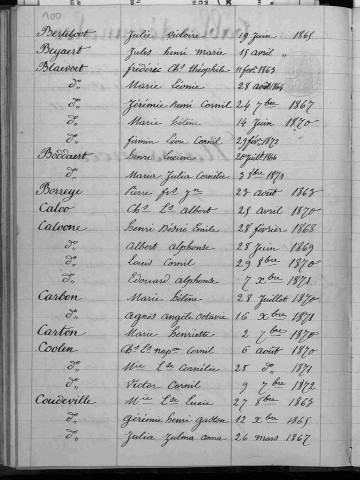 100
Berteloot Julie victoire 19 Juin 1865
Beyaert Jules henri marie 15 avril "
Blawoet frédéric Ch. théophile 11 fév. 1863
d° Marie Léonie 28 août 1864
d° Jérémie henri Cornil 24 7bre 1867
d° Marie hélène 14 Juin 1870
d° firmin Léon Cornil 29 fév. 1872
Boddaert henri Lucien 20 Juill. 1866
d° Maria Julia Cornélie 3 8bre 1870
Borreye Pierre 23 août 1863
Caloo Ch. Ls Albert 25 avril 1870
Caloone henri Désiré Emile 28 février 1868
d° Albert alphonse 28 Juin 1869
d° Louis Cornil 29 8bre 1870
d° Edouard alphonse 7 Xbre 1871
Carbon Marie hélène 28 Juillet 1870
d° agnès angèle octavie 16 Xbre 1871
Carton Marie henriette 2 7bre 1870
Coolen Ch. Ls nap. Cornil 6 août 1870
d° Mie Lse Cornélie 28 d° 1871
d° Victor Cornil 9 7bre 1872
Coudeville Mie Lse Lucie 27 8bre 1863
d° gérémie henri gaston 12 Xbre 1865
d° Julia Zulma anna 26 mars 1867